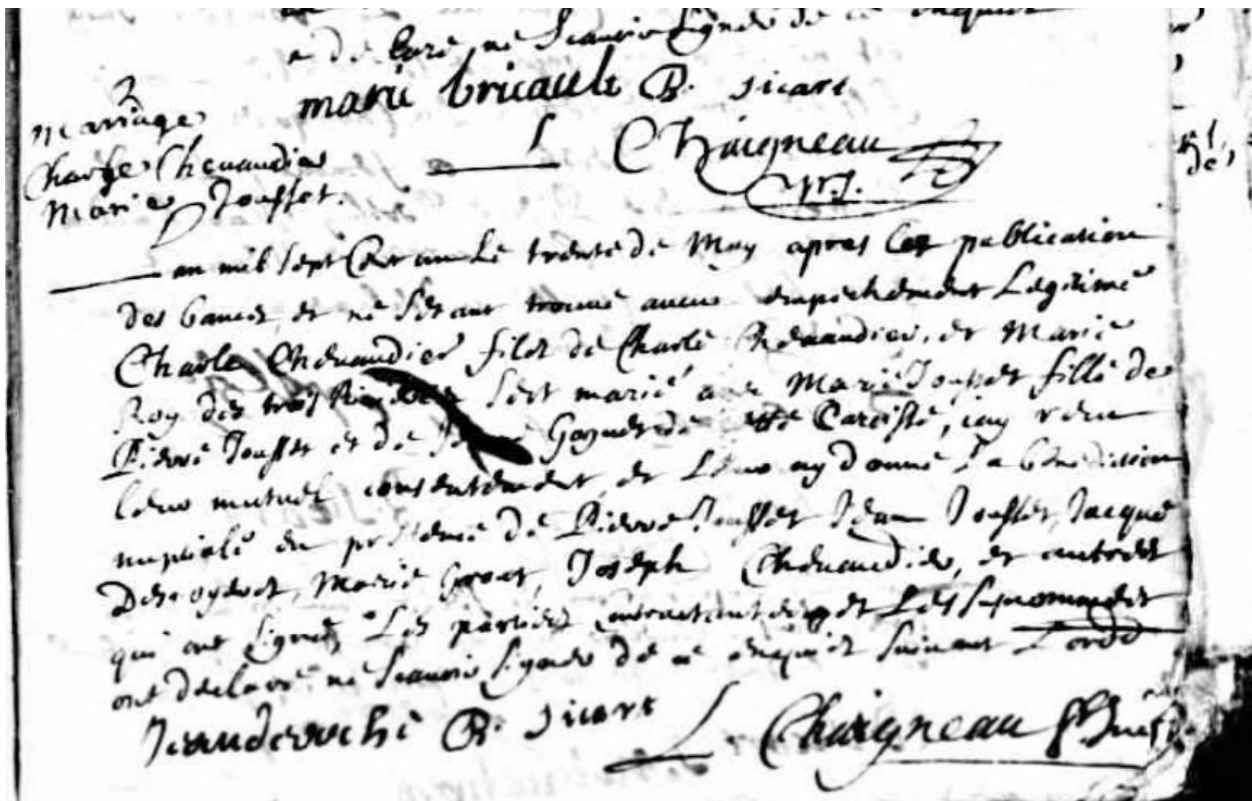 de Cure ne scauoir signer de ce enquis
marie bricault R. sicart
L Chaigneau
ptre.
2
mariage
Charle Cheuaudier
Marie Jousset.
an mil sept Cent un Le trente de May apres Les publication
des bancs, et ne s'etant trouué aucun empechement Legitime
Charle Cheuaudier fils de Charle Cheuaudier, et Marie
Roy des trois s'est marié auec Marie Jousset fille de
Pierre Jousset et de de cette Paroisse, iay receu
leur mutuel consentement, et leur ay donné La benediction
nuptiale en presence de Pierre Jousset Jean Jousset, Jacque
Marie Joseph Cheuaudier, et autres
qui ont signé Les parties contractantes et Les
ont declaré ne scauoir signer de ce enquis suiuant L'ord
R. sicart
L. Chaigneau